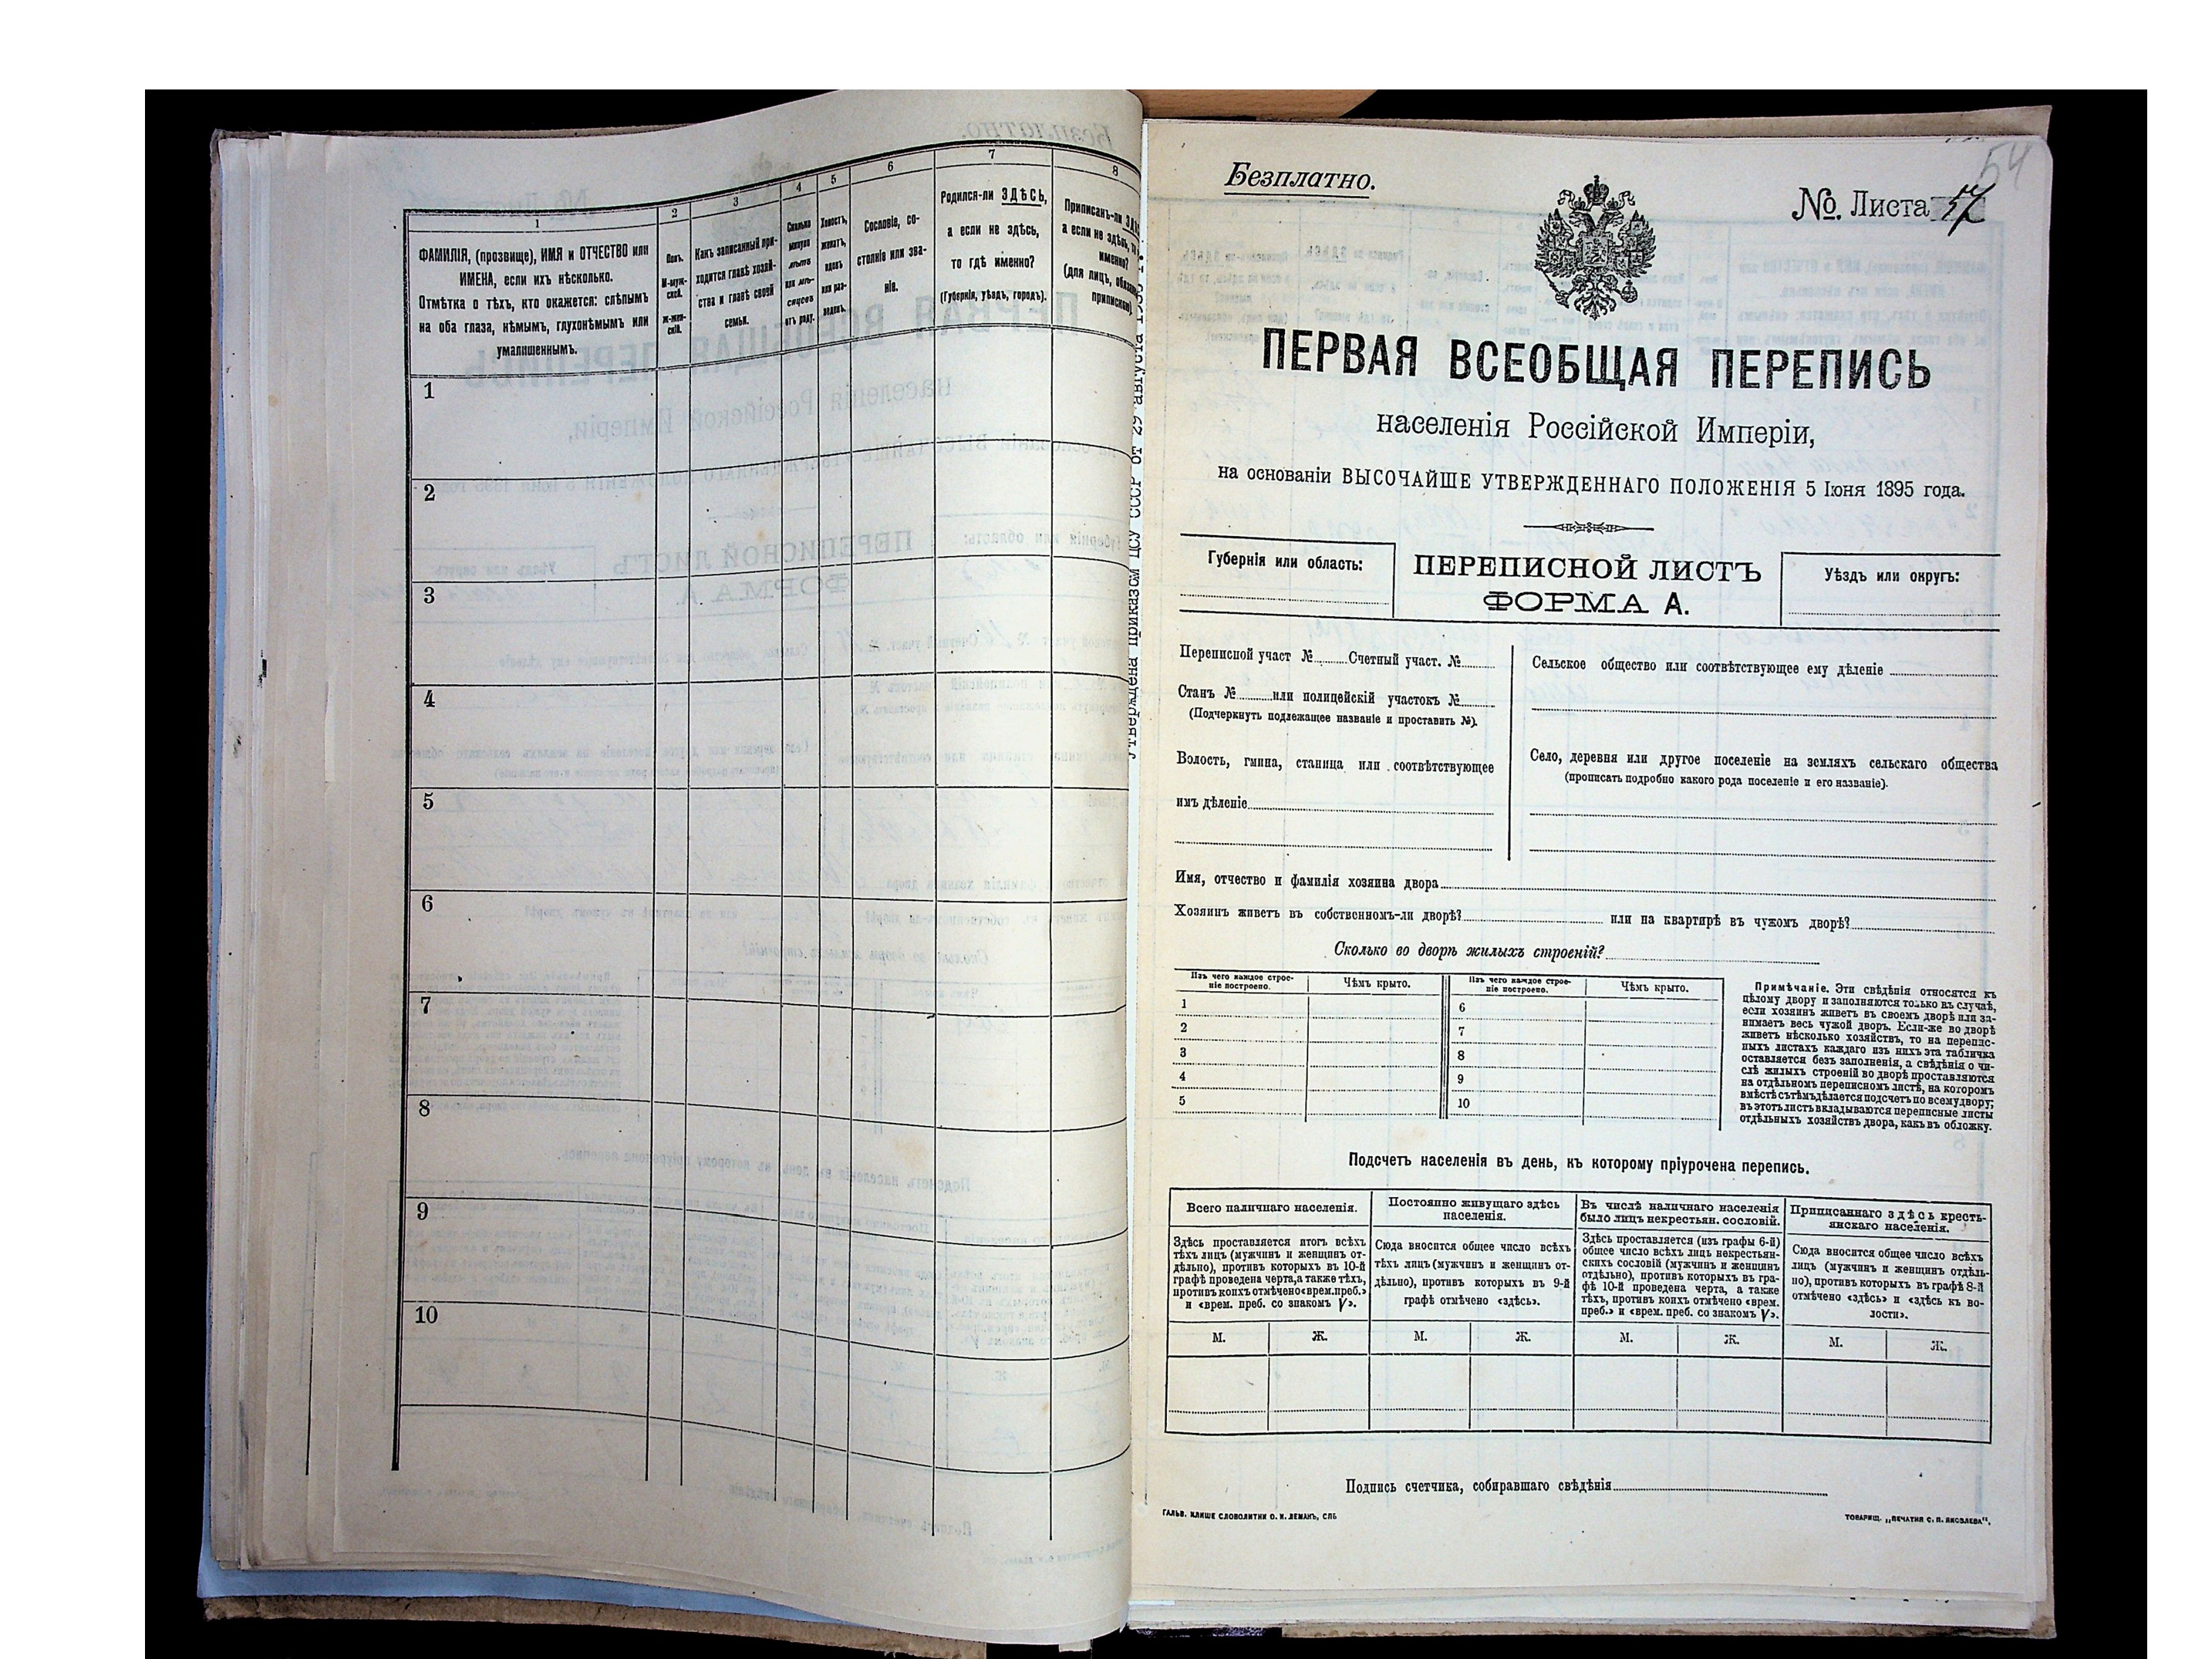 1
2
3
4
5
6
7
8
ФАМИЛІЯ, (прозвище), ИМЯ и ОТЧЕСТВО или
ИМЕНА, если ихъ нѣсколько.
Отмѣтка о тѣхъ, кто окажется: слѣпымъ
на оба глаза, нѣмымъ, глухонѣмымъ или
умалишеннымъ.
Полъ.
М-муж-
ской.
ж-жен-
скій.
Какъ записанный при-
ходится главѣ хозяй-
ства и главѣ своей
семьи.
Сколько
минуло
лѣтъ
или мѣ-
сяцевъ
отъ роду.
Холостъ,
женатъ,
вдовъ
или раз-
веденъ.
Сословіе, со-
стояніе или зва-
ніе.
Родился-ли ЗДѢСЬ,
а если не здѣсь,
то гдѣ именно?
(Губернія, уѣздъ, городъ).
Приписанъ-ли
а если не здѣсь,
именно?
(для лицъ,
припискою).
1
2
3
4
5
6
7
8
9
10
Утверждена приказом ЦСУ СССР от 29 августа
Безплатно.
54
№. Листа 57
ПЕРВАЯ ВСЕОБЩАЯ ПЕРЕПИСЬ
населенія Россійской Имперіи,
на основаніи ВЫСОЧАЙШЕ УТВЕРЖДЕННАГО ПОЛОЖЕНІЯ 5 Іюня 1895 года.
Губернія или область:
ПЕРЕПИСНОЙ ЛИСТЪ
ФОРМА А.
Уѣздъ или округъ:
Переписной участ №. Счетный участ. №
Станъ № или полицейскій участокъ №
(Подчеркнуть подлежащее названіе и проставить №).
Волость, гмина, станица или соотвѣтствующее
имъ дѣленіе
Сельское общество или соотвѣтствующее ему дѣленіе
Село, деревня или другое поселеніе на земляхъ сельскаго общества
(прописать подробно какого рода поселеніе и его названіе).
Имя, отчество и фамилія хозяина двора
Хозяинъ живетъ въ собственномъ-ли дворѣ? или на квартирѣ въ чужомъ дворѣ?
Сколько во дворѣ жилыхъ строеній?
Изъ чего каждое строе-
ніе построено.
Чѣмъ крыто.
Изъ чего каждое строе-
ніе построено.
Чѣмъ крыто.
1
2
3
4
5
6
7
8
9
10
Примѣчаніе. Эти свѣдѣнія относятся къ
цѣлому двору и заполняются только въ случаѣ,
если хозяинъ живетъ въ своемъ дворѣ или за-
нимаетъ весь чужой дворъ. Если-же во дворѣ
живетъ нѣсколько хозяйствъ, то на перепис-
ныхъ листахъ каждаго изъ нихъ эта табличка
оставляется безъ заполненія, а свѣдѣнія о чи-
слѣ жилыхъ строеній во дворѣ проставляются
на отдѣльномъ переписномъ листѣ, на которомъ
вмѣстѣ съ тѣмъ дѣлается подсчетъ по всему двору;
въ этотъ листъ вкладываются переписные листы
отдѣльныхъ хозяйствъ двора, какъ въ обложку.
Подсчетъ населенія въ день, къ которому пріурочена перепись.
Всего наличнаго населенія.
Здѣсь проставляется итогъ всѣхъ
тѣхъ лицъ (мужчинъ и женщинъ от-
дѣльно), противъ которыхъ въ 10-й
графѣ проведена черта, а также тѣхъ,
противъ коихъ отмѣчено «врем. преб.»
и «врем. преб. со знакомъ V».
Постоянно живущаго здѣсь
населенія.
Сюда вносится общее число всѣхъ
тѣхъ лицъ (мужчинъ и женщинъ от-
дѣльно), противъ которыхъ въ 9-й
графѣ отмѣчено «здѣсь».
Въ числѣ наличнаго населенія
было лицъ некрестьян. сословій.
Здѣсь проставляется (изъ графы 6-й)
общее число всѣхъ лицъ некрестьян-
скихъ сословій (мужчинъ и женщинъ
отдѣльно), противъ которыхъ въ гра-
фѣ 10-й проведена черта, а также
тѣхъ, противъ коихъ отмѣчено «врем.
преб.» и «врем. преб. со знакомъ V».
Приписаннаго здѣсь кресть-
янскаго населенія.
Сюда вносится общее число всѣхъ
лицъ (мужчинъ и женщинъ отдѣль-
но), противъ которыхъ въ графѣ 8-й
отмѣчено «здѣсь» и «здѣсь къ во-
лости».
М. Ж. М. Ж. М. Ж. М. Ж.
Подпись счетчика, собиравшаго свѣдѣнія
ГАЛЬВ. КЛИШЕ СЛОВОЛИТНИ О. И. ЛЕМАНЪ, СПБ
ТОВАРИЩ. „ПЕЧАТНЯ С. П. ЯКОВЛЕВА“.